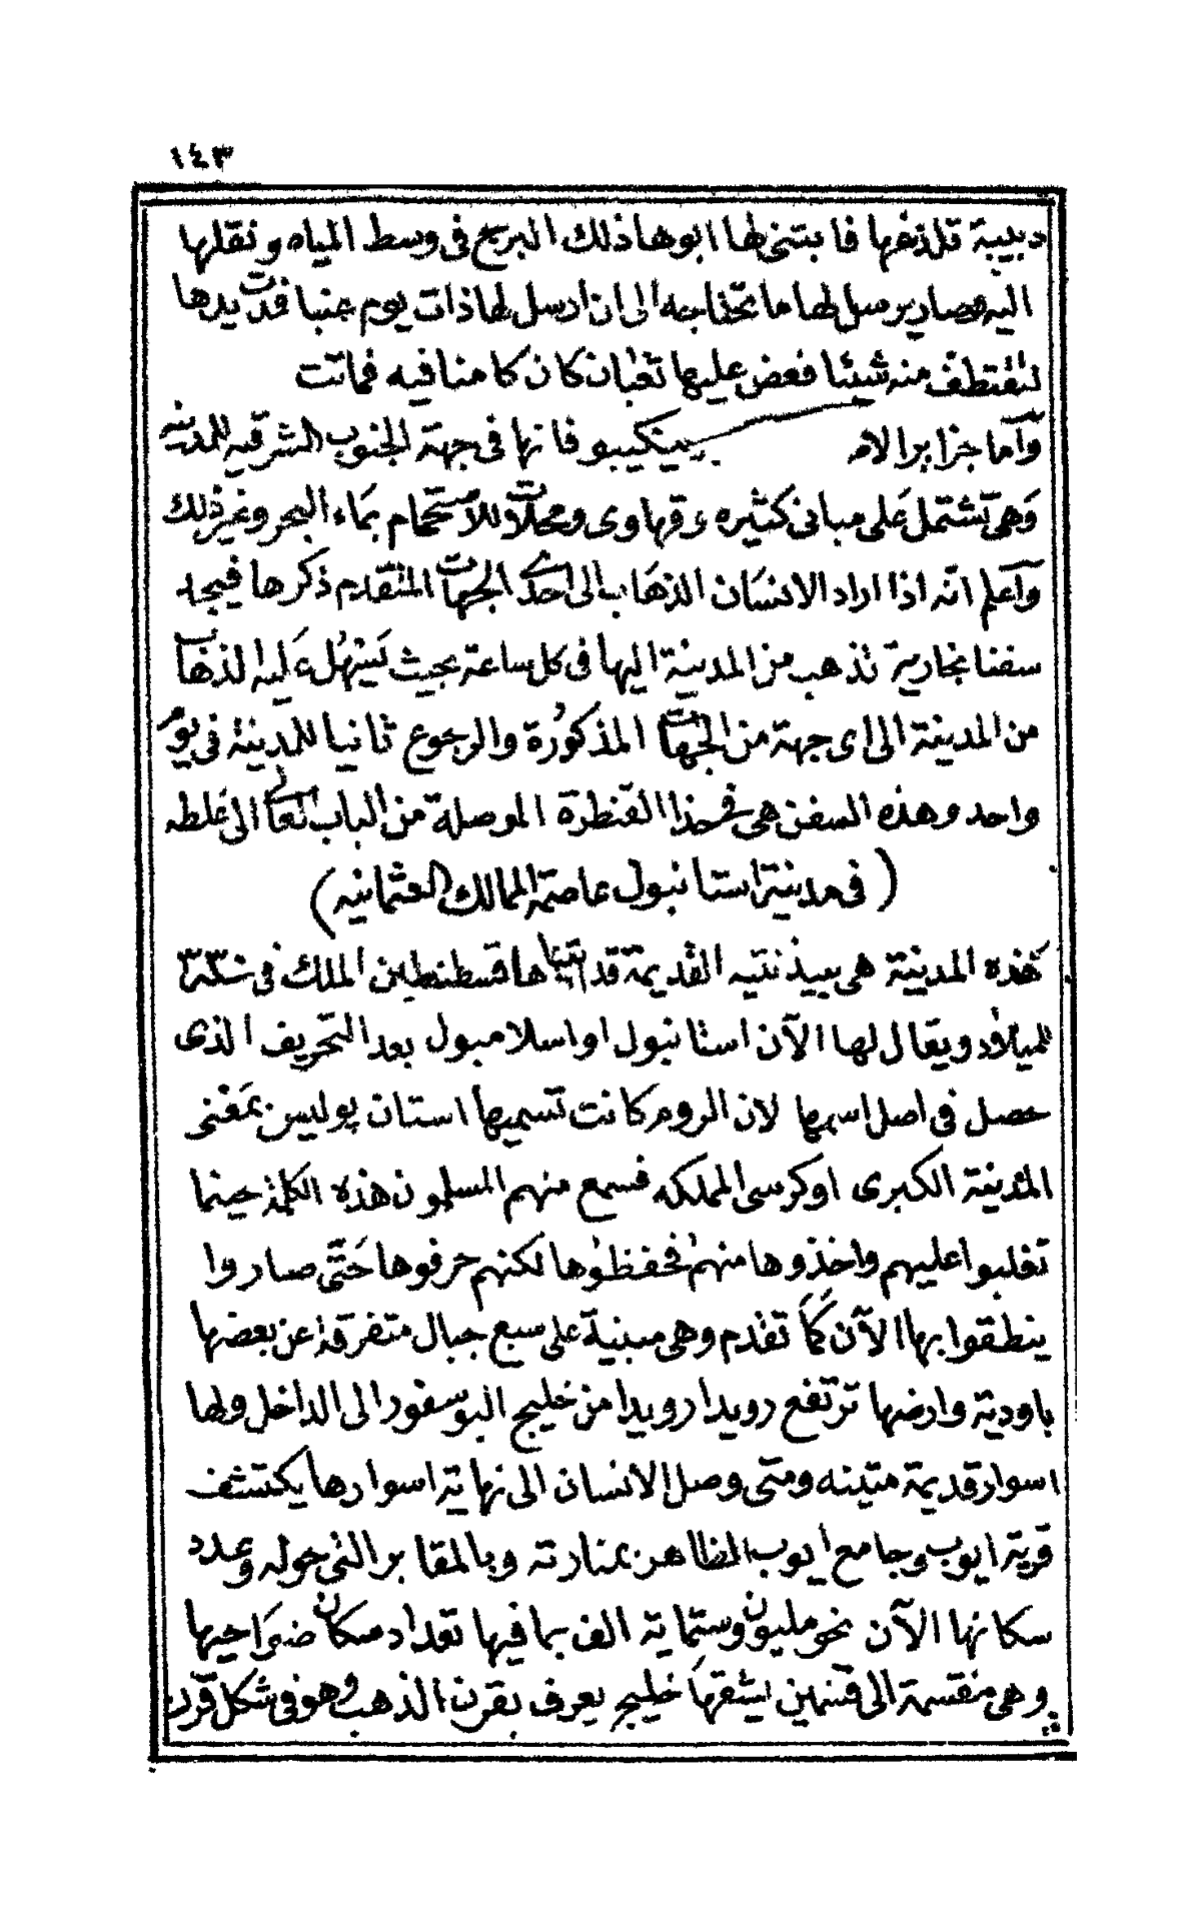 ١٤٣
دبيبة تلدغها فابتنى لها ابوها ذلك البرج فى وسط المياه ونقلها
اليه وصار يرسل لها ما تحتاجه الى ان ارسل لها ذات يوم عنبا فمدت يدها
لتقتطف منه شيئا فعض عليها ثعبان كان كامنا فيه فماتت
وأما جزاير الامر بينكيبو فانها فى جهة الجنوب الشرقيه للمدينه
وهى تشتمل على مبانى كثيره وقهاوى ومحلات للاستحمام بماء البحر وغير ذلك
وأعلم انّه اذا اراد الانسان الذهاب الى احدى الجهات المتقدم ذكرها فيجد
سفنا بخارية تذهب من المدينة اليها فى كل ساعة بحيث يسهل عليه الذهاب
من المدينة الى اى جهة من الجهات المذكورة والرجوع ثانيا للمدينة فى يوم
واحد وهذه السفن هى فى حذا القنطرة الموصلة من الباب العالى الى غلطه
(فى مدينة استانبول عاصمة الممالك العثمانيه)
هذه المدينة هى بيذنتيه القديمة قد ابتناها قسطنطين الملك فى سنة ٣٣٠
للميلاد ويقال لها الآن استانبول او اسلامبول بعد التحريف الذى
حصل فى اصل اسمها لان الروم كانت تسميها استان پوليس بمعنى
المدينة الكبرى او كرسى المملكه فسمع منهم المسلمون هذه الكلمة حينما
تغلبوا عليهم واخذوها منهم فحفظوها لكنهم حرفوها حتّى صاروا
ينطقوا بها الآن كما تقدم وهى مبنية على سبع جبال متفرقة عن بعضها
باودية وارضها ترتفع رويدا رويدا من خليج البوسفور الى الداخل ولها
اسوار قديمة متينه ومتى وصل الانسان الى نهاية اسوارها يكتشف
قرية ايوب وجامع ايوب الظاهر بمنارته وبالمقابر التى حوله وعدد
سكانها الآن نحو مليون وستماية الف بما فيها تعداد سكان ضواحيها
وهى منقسمة الى قسمين يشقها خليج يعرف بقرن الذهب وهو فى شكل قرن